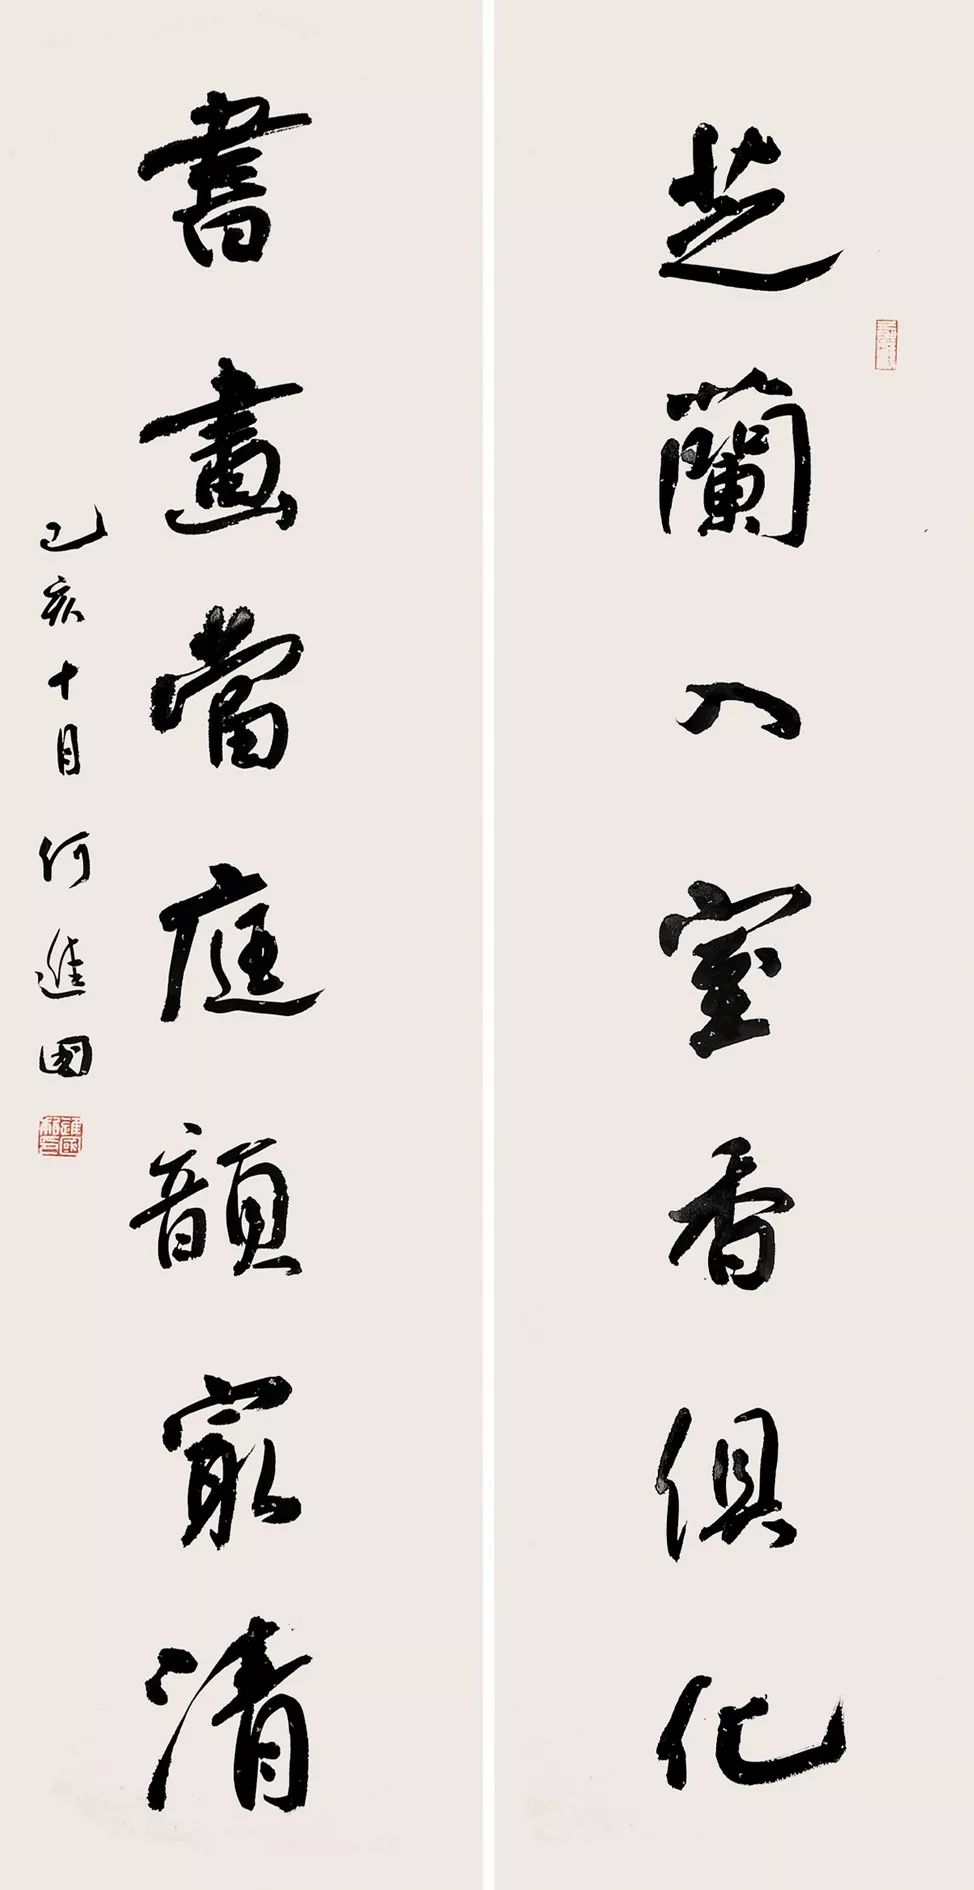 芝蘭入室香俱化
書畫當庭韻冣清
己亥十月何進國